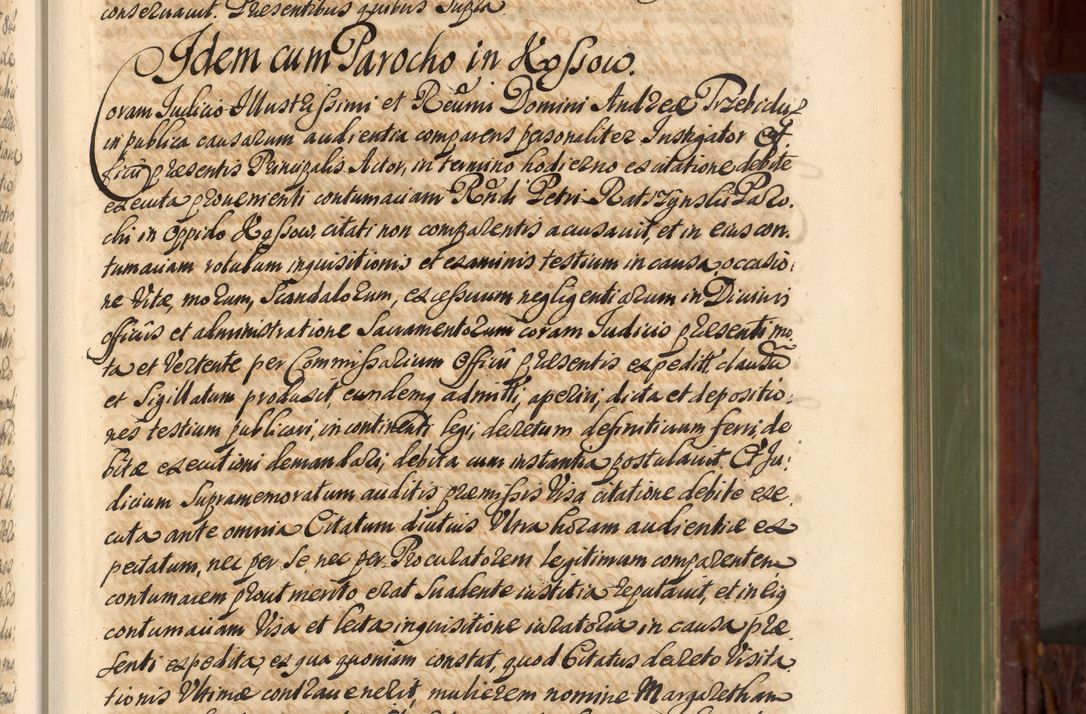 conseruauit. Presentibus quibus Supra
Idem cum Parocho in Kossow.
Coram Iudicio Illustrissimi et Reũmi Domini Andreæ Trzebicki
in publica causarum audientia comparens personaliter Instigator Of
ficii presentis Principalis Actor, in termino hodierno ex citatione debite
executa prouenienti contumaciam Rñdi Petri Ratszynski Paro.
chi in Oppido Kossow, citati non comparentis accusauit, et in eius con.
tumaciam rotulum inquisitionis et examinis testium in causa, occasio:
ne Vitæ, morum, Scandalorum, excessuum negligentiarum in Diuinis
officiis et administratione Sacramentorum coram Iudicio presenti mo.
ta et Vertente per Commissarium Officii presentis expedit, clausũ
et Sigillatum produxit, eundemq admitti, aperiri, dicta et depositio:
nes testium publicari, in continenti legi, decretum definitiuum ferri, de
bitæ executioni demandari, debita cum instantia postulauit. Et Iu:
dicium Supramemoratum auditis præmissis Visa citatione debite exe
cuta ante omnia Citatum diutius Vltra horam audientiæ ex
pectatum, nec per Se, nec per Procuratorem legitimum comparentem
contumacem prout merito erat Suadente iustitia reputauit, et in eiq
contumaciam Visa et lecta inquisitione iuratoria in causa præ
senti expedita, ex qua quoniam constat, quod Citatus decreto Visita
tionis Vltimæ contrauenerit, mulierem nomine Margaretham